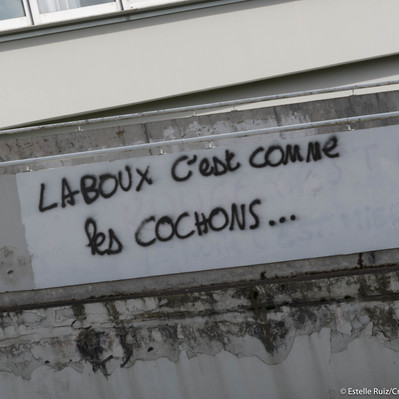 LABOUX C'est COMME
les COCHONS...
© Estelle Ruiz/Cr